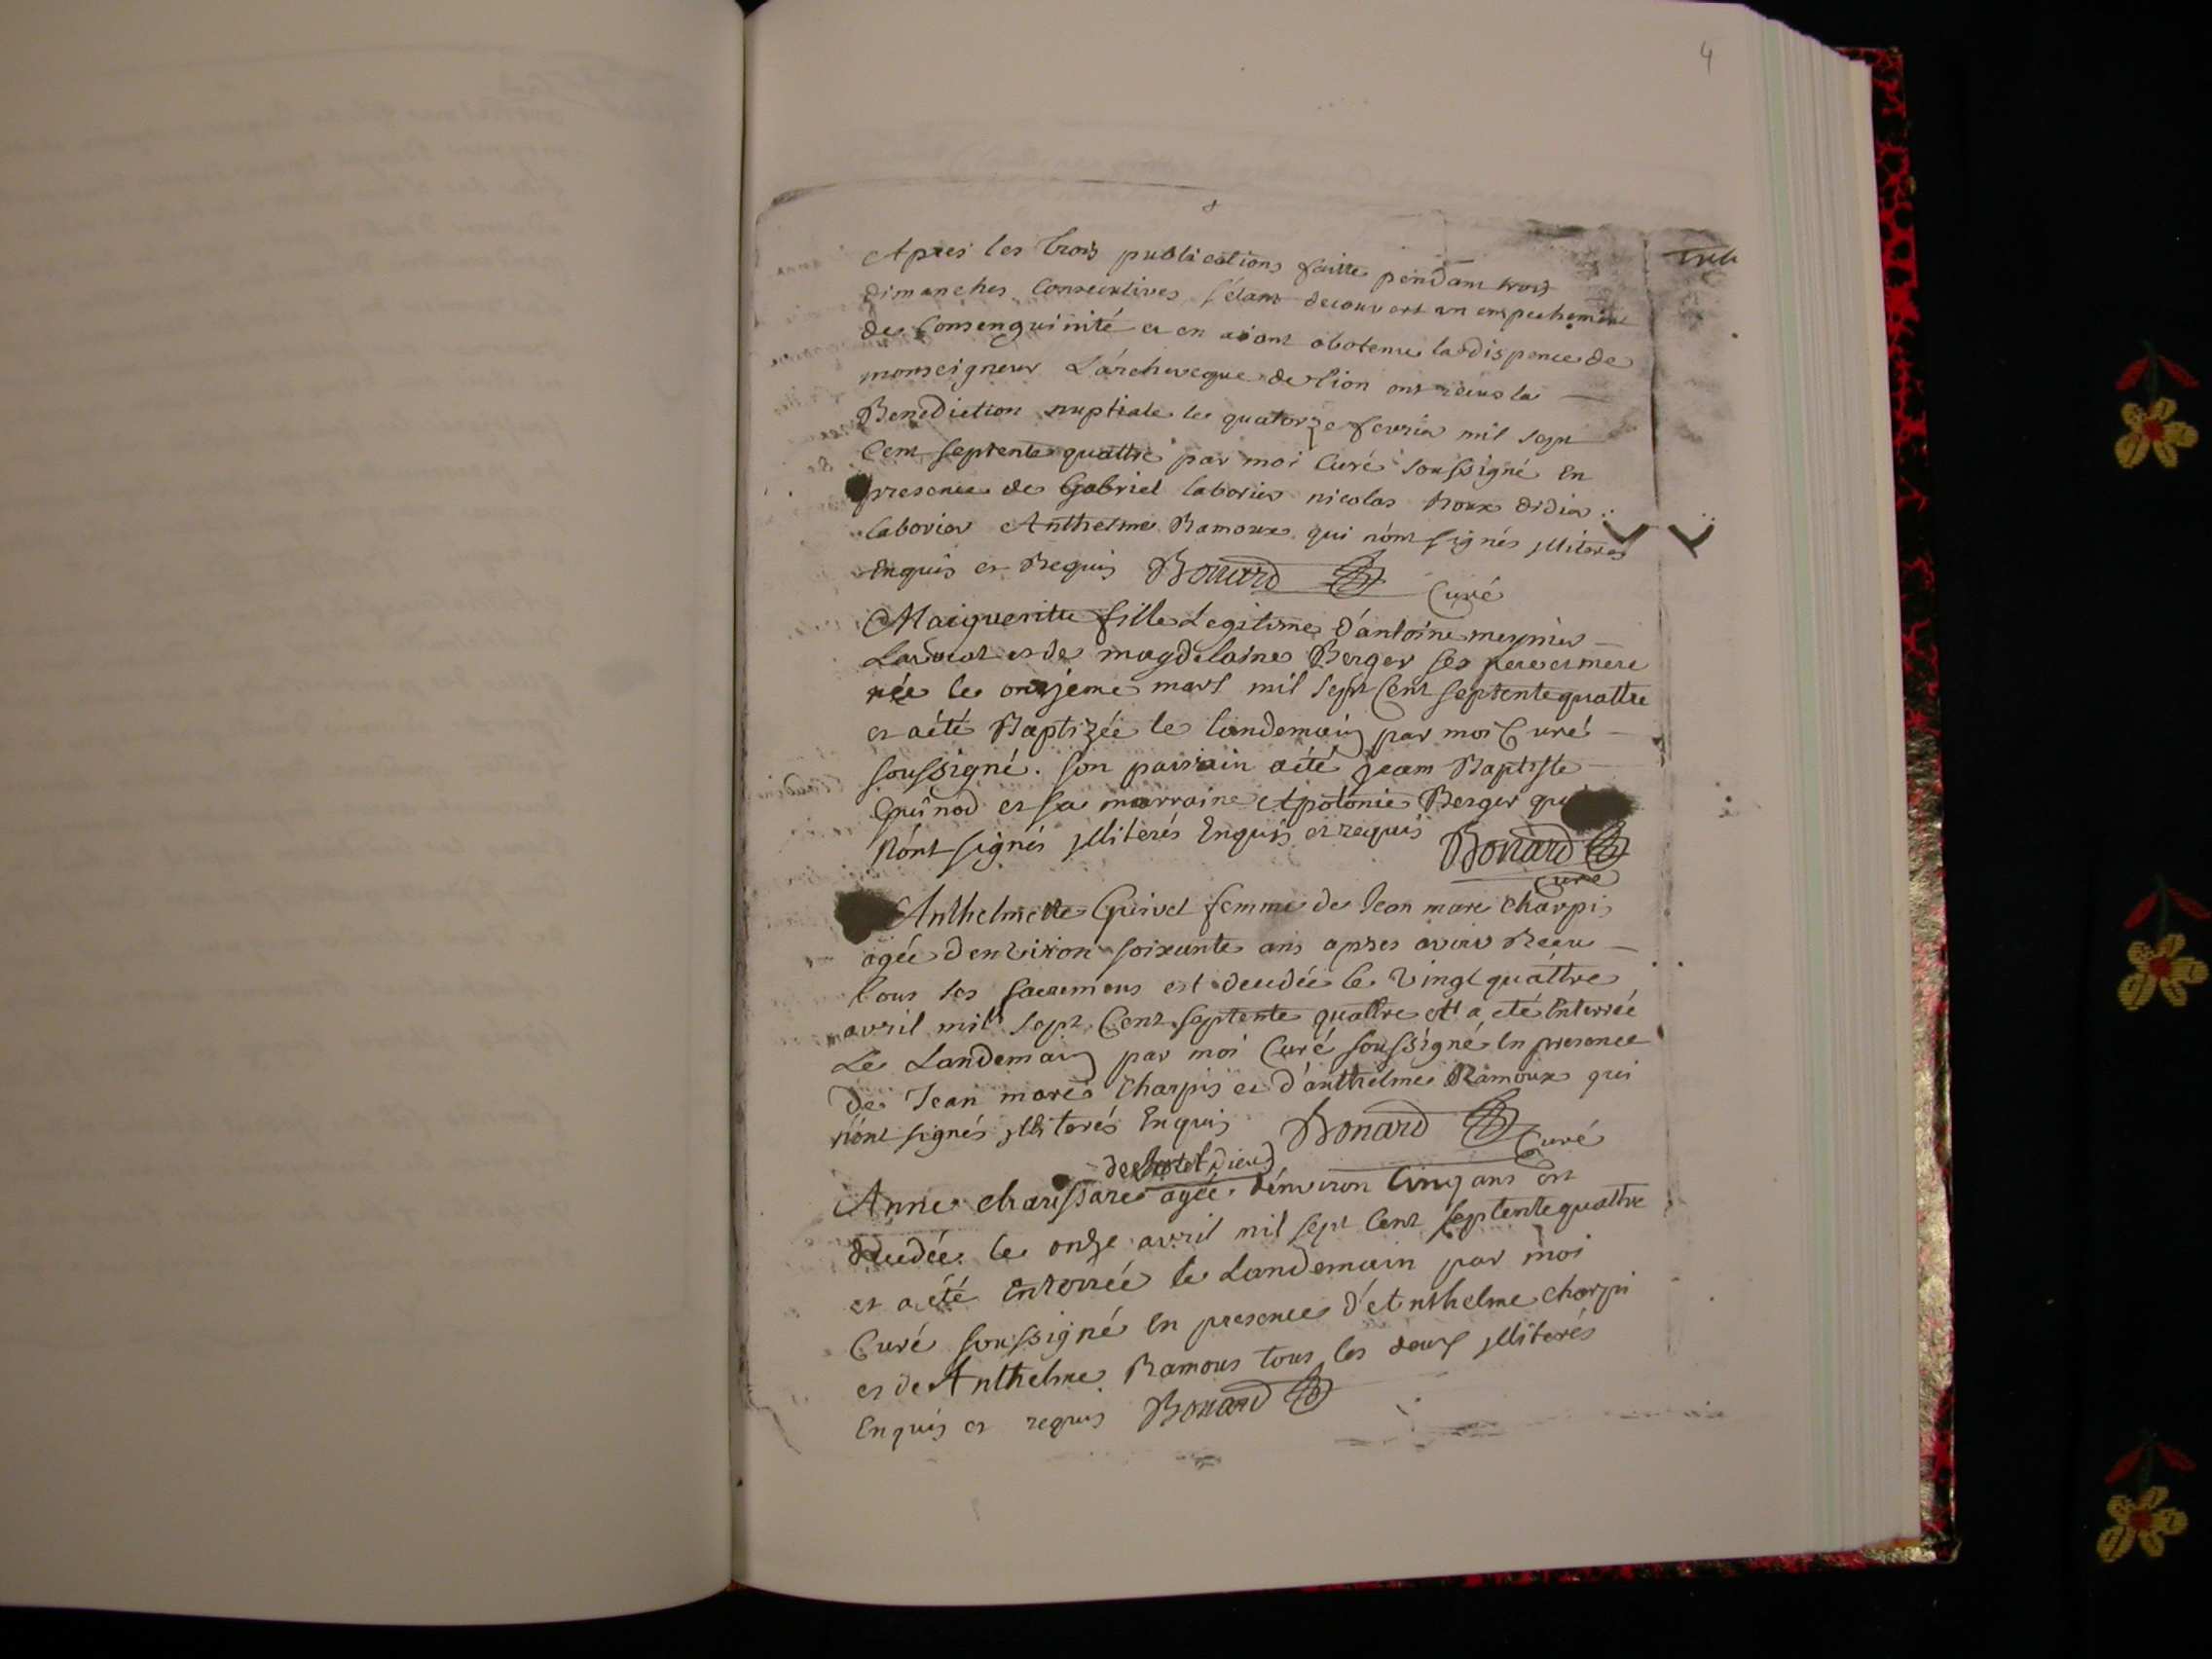 4
Apres les trois publications faitte pendant trois
dimanches Consecutives s'étant decouvert un empechement
de Consenguinité et en aiant obotenu la dispence de
monseigneur L'archeveque de lion ont reçus la
Benediction nuptiale le quatorze fevrier mil sept
Cent septente quattre par moi Curé soussigné En
presence de Gabriel laborier nicolas Roux didier
laborier Anthelme Ramoux qui n'ont signés illiterés
Enquis et Requis Bonard Curé
Margueritte fille Legitime d'antoine meynier
et de magdelaine Berger ses pere et mere
née le onzieme mars mil sept Cent septente quattre
et a été Baptizée le landemain par moi Curé
soussigné. son parrain a été jean Baptiste
Guinod et sa marraine Apolonie Berger qui
n'ont signés illiterés Enquis et requis Bonard
Curé
Anthelmette Guivet femme de Jean marc Charpi
agée d'environ soixante ans apres avoir Reçu
tous les sacremens est decedée le vingt quattre
avril mil sept Cent septente quattre et a été Enterrée
Le Landemain par moi Curé soussigné En presence
de Jean marc Charpis et d'anthelme Ramoux qui
n'ont signés illiterés Enquis Bonard Curé
de hotel dieu
Anne agée d'environ Cinq ans est
decedée le onze avril mil sept Cent septente quattre
et a été Enterrée le Landemain par moi
Curé soussigné En presence d'Anthelme Charpi
et de Anthelme Ramoux tous les deux illiterés
Enquis et requis Bonard